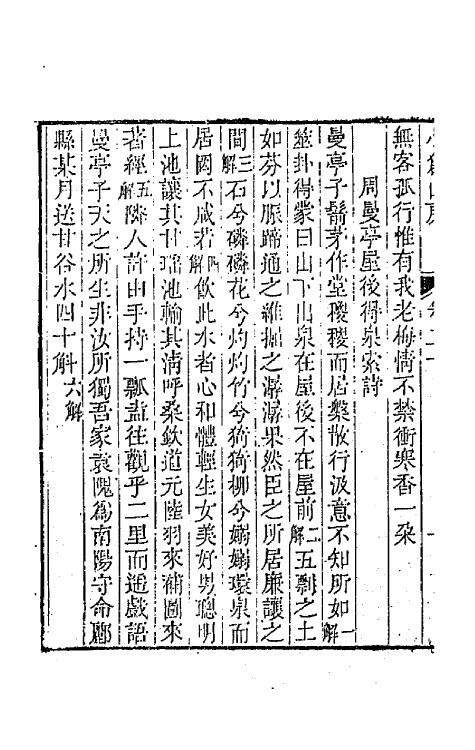 無客孤行惟有我老梅情不禁衝寒香一朶
周曼亭屋後得泉索詩
曼亭子翳茅作堂稷稷而居槃散行汲意不知所如一解
筮卦得蒙曰山下出泉在屋後不在屋前二解五剽之土
如芬以脹蹄通之錐掘之潺潺果然臣之所居廉讓之
間三解石兮磷磷花兮灼灼竹兮猗猗柳兮嫋嫋環泉而
居罔不咸若四解飲此水者心和體輕生女美好男聰明
上池讓其甘瑤池輸其淸呼桑欽道元陸羽來補圖來
著經五解隣人許由手持一瓢盍往觀乎二里而遙戲語
曼亭子天之所生非汝所獨吾家袁隗爲南陽守命酈
縣某月送甘谷水四十斛六解